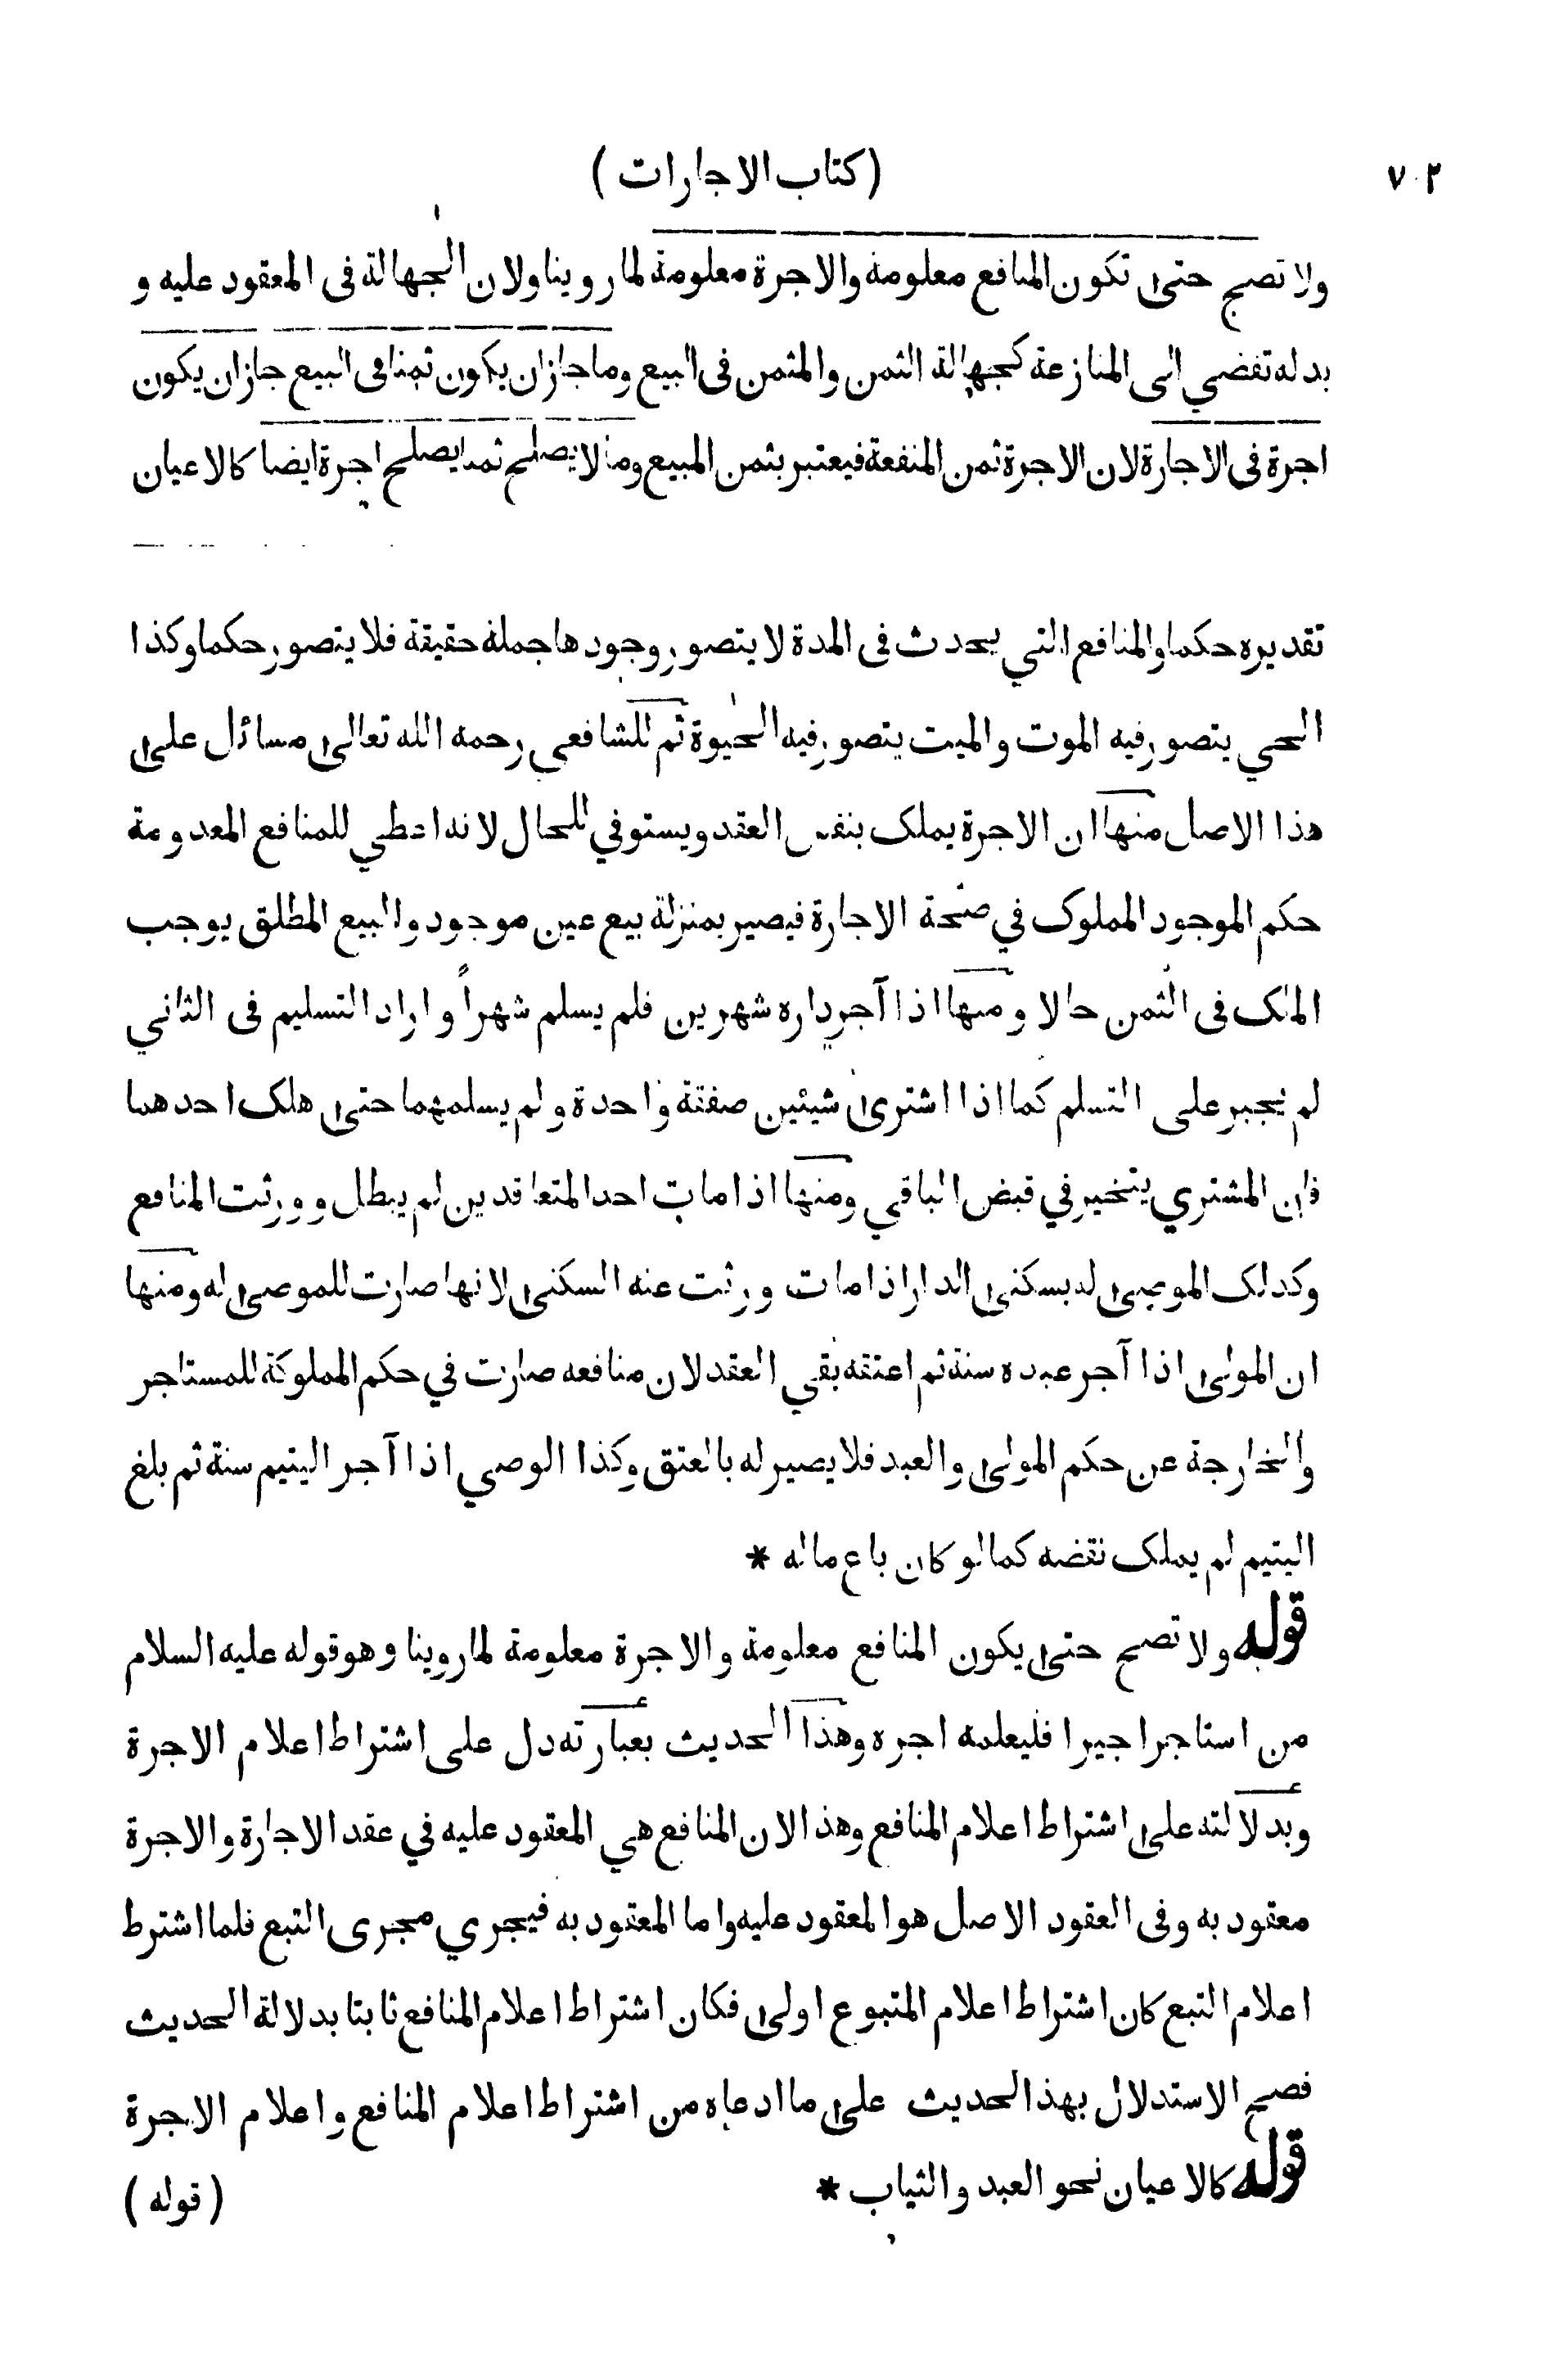 ٧٠٢
( كتاب الاجارات )
ولا تصح حتى تكون المنافع معلومة والاجرة معلومة لما روينا ولان الجهالة فى المعقود عليه و
بدله تفضي الى المنازعة كجهالة الثمن والمثمن فى البيع وما جاز ان يكون ثمنا فى البيع جاز ان يكون
اجرة فى الاجارة لان الاجرة ثمن المنفعة فيعتبر بثمن المبيع وما لا يصلح ثمنا يصلح اجرة ايضا كالاعيان
تقديره حكما والمنافع التي يحدث فى المدة لا يتصور وجودها جملة حقيقة فلا يتصور حكما وكذا
الحي يتصور فيه الموت والميت يتصور فيه الحيوة ثم للشافعي رحمه الله تعالى مسائل على
هذا الاصل منها ان الاجرة يملك بنفس العقد ويستوفي للحال لانه اعطي للمنافع المعدومة
حكم الموجود المملوك في صحة الاجارة فيصير بمنزلة بيع عين موجود والبيع المطلق يوجب
الملك فى الثمن حالا ومنها اذا آجر داره شهرين فلم يسلم شهراً و اراد التسليم فى الثاني
لم يجبر على التسلم كما اذا اشترى شيئين صفقة واحدة ولم يسلمهما حتى هلك احدهما
فان المشتري يتخير في قبض الباقي ومنها اذا مات احد المتعاقدين لم يبطل وورثت المنافع
وكذلك الموصى له بسكنى الدار اذا مات ورثت عنه السكنى لانها صارت للموصى له ومنها
ان المولى اذا آجر عبده سنة ثم اعتقه بقي العقد لان منافعه صارت في حكم المملوكة للمستاجر
والخارجة عن حكم المولى والعبد فلا يصير له بالعتق وكذا الوصي اذا آجر اليتيم سنة ثم بلغ
اليتيم لم يملك نقضه كما لو كان باع ماله *
قوله ولا تصح حتى يكون المنافع معلومة والاجرة معلومة لما روينا وهو قوله عليه السلام
من استاجر اجيرا فليعلمه اجره وهذا الحديث بعبارته دل على اشتراط اعلام الاجرة
وبدلالته على اشتراط اعلام المنافع وهذا لان المنافع هي المعقود عليه في عقد الاجارة والاجرة
معقود به وفى العقود الاصل هو المعقود عليه واما المعقود به فيجري مجرى التبع فلما اشترط
اعلام التبع كان اشتراط اعلام المتبوع اولى فكان اشتراط اعلام المنافع ثابتا بدلالة الحديث
فصح الاستدلال بهذا الحديث على ما ادعاه من اشتراط اعلام المنافع واعلام الاجرة
قوله كالاعيان نحو العبد والثياب *
( قوله )